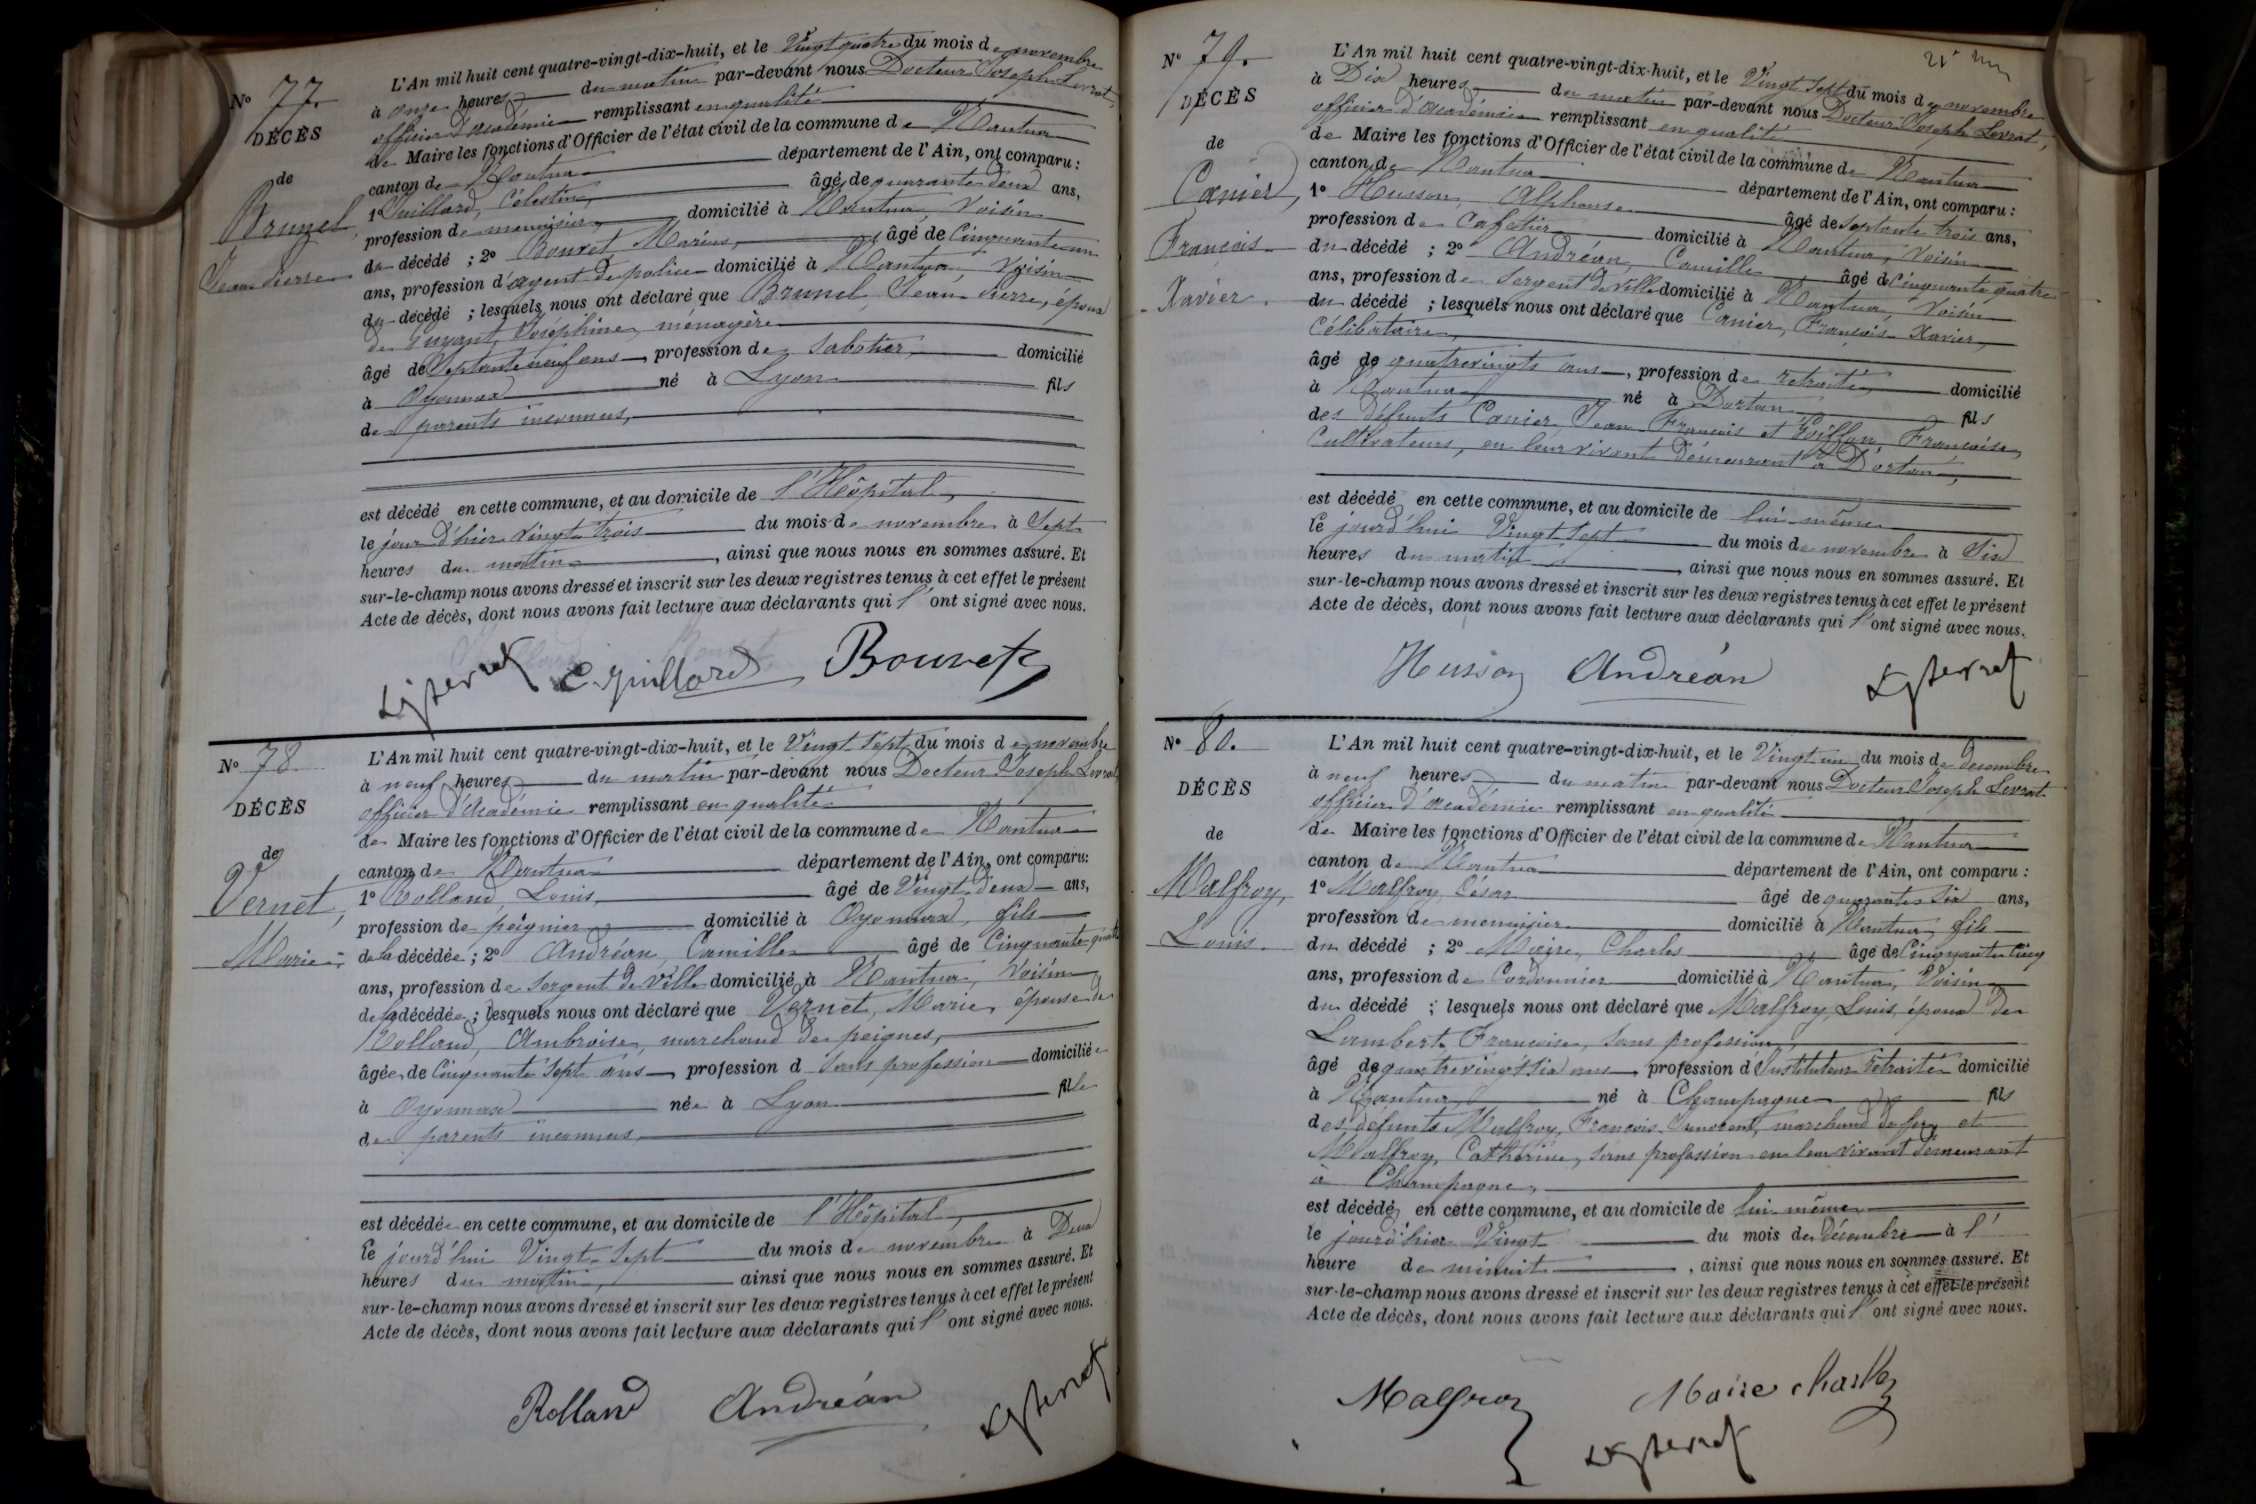 N° 77.
DÉCÈS
de
Brunel,
Jean Pierre
L'An mil huit cent quatre-vingt-dix-huit, et le Vingt quatre du mois de novembre
à onze heures du matin par-devant nous Docteur Joseph Levrat,
officier d'académie remplissant en qualité
de Maire les fonctions d'Officier de l'état civil de la commune de Nantua
canton de Nantua département de l'Ain, ont comparu :
1° Juillard, Célestin, âgé de quarante deux ans,
profession de menuisier, domicilié à Nantua, voisin
du décédé ; 2° Bouvet Marius, âgé de Cinquante un
ans, profession d'agent de police domicilié à Nantua, voisin
du décédé ; lesquels nous ont déclaré que Brunel, Jean Pierre, époux
de Joséphine, ménagère
âgé de Septante neuf ans, profession de Sabotier, domicilié
à Oyonnax né à Lyon fils
de parents inconnus,
est décédé en cette commune, et au domicile de l'Hôpital,
le jour d'hier vingt trois du mois de novembre à Sept
heures du matin, ainsi que nous nous en sommes assuré. Et
sur-le-champ nous avons dressé et inscrit sur les deux registres tenus à cet effet le présent
Acte de décès, dont nous avons fait lecture aux déclarants qui l' ont signé avec nous.
C. Juillard Bouvet
N° 78
DÉCÈS
de
Vernet,
Marie
L'An mil huit cent quatre-vingt-dix-huit, et le Vingt Sept du mois de novembre
à neuf heures du matin par-devant nous Docteur Joseph Levrat
officier d'Académie remplissant en qualité
de Maire les fonctions d'Officier de l'état civil de la commune de Nantua
canton de Nantua département de l'Ain, ont comparu:
1° Rolland, Louis, âgé de Vingt deux ans,
profession de peignier domicilié à Oyonnax, fils
de la décédée ; 2° Andréan, Camille âgé de Cinquante quatre
ans, profession de Sergent de Ville domicilié à Nantua, voisin
de la décédée ; lesquels nous ont déclaré que Vernet, Marie, épouse de
Rolland, Ambroise, marchand de peignes,
âgée de Cinquante Sept ans, profession d Sans profession domiciliée
à Oyonnax née à Lyon fille
de parents inconnus
est décédée en cette commune, et au domicile de l'Hôpital,
le jourd'hui Vingt Sept du mois de novembre à Deux
heures du matin, ainsi que nous nous en sommes assuré. Et
sur-le-champ nous avons dressé et inscrit sur les deux registres tenus à cet effet le présent
Acte de décès, dont nous avons fait lecture aux déclarants qui l' ont signé avec nous.
Rolland Andréan
N° 79.
DÉCÈS
de
Canier,
François
Xavier.
L'An mil huit cent quatre-vingt-dix-huit, et le Vingt Sept du mois de novembre
à Dix heures du matin par-devant nous Docteur Joseph Levrat,
officier d'académie remplissant en qualité
de Maire les fonctions d'Officier de l'état civil de la commune de Nantua
canton de Nantua département de l'Ain, ont comparu :
1° Husson, Alphonse âgé de Septante trois ans,
profession de Cafetier domicilié à Nantua, voisin
du décédé ; 2° Andréan, Camille âgé de Cinquante quatre
ans, profession de Sergent de Ville domicilié à Nantua, voisin
du décédé ; lesquels nous ont déclaré que Canier, François Xavier,
célibataire,
âgé de quatrevingts ans, profession de retraité, domicilié
à Nantua né à Dortan fils
des défunts Canier, Jean François et Françoise,
Cultivateurs, en leur vivant demeurant à Dortan,
est décédé en cette commune, et au domicile de lui-même
le jourd'hui Vingt Sept du mois de novembre à Six
heures du matin, ainsi que nous nous en sommes assuré. Et
sur-le-champ nous avons dressé et inscrit sur les deux registres tenus à cet effet le présent
Acte de décès, dont nous avons fait lecture aux déclarants qui l' ont signé avec nous.
Husson Andréan
N° 80.
DÉCÈS
de
Malfroy,
Louis.
L'An mil huit cent quatre-vingt-dix-huit, et le Vingt un du mois de décembre
à neuf heures du matin par-devant nous Docteur Joseph Levrat
officier d'académie remplissant en qualité
de Maire les fonctions d'Officier de l'état civil de la commune de Nantua
canton de Nantua département de l'Ain, ont comparu :
1° Malfroy, César âgé de quarante six ans,
profession de menuisier domicilié à Nantua, fils
du décédé ; 2° Maire, Charles âgé de Cinquante cinq
ans, profession de Cordonnier domicilié à Nantua, Voisin
du décédé ; lesquels nous ont déclaré que Malfroy, Louis, époux de
Lambert Françoise, Sans profession,
âgé de quatrevingt six ans, profession d'Instituteur retraité domicilié
à Nantua, né à Champagne fils
des défunts Malfroy, François Innocent, marchand de fer, et
Malfroy, Catherine, sans profession en leur vivant demeurant
à Champagne,
est décédé en cette commune, et au domicile de lui-même
le jourd'hier Vingt du mois de Décembre à l'
heure de minuit, ainsi que nous nous en sommes assuré. Et
sur-le-champ nous avons dressé et inscrit sur les deux registres tenus à cet effet le présent
Acte de décès, dont nous avons fait lecture aux déclarants qui l' ont signé avec nous.
Malfroy Maire Charles